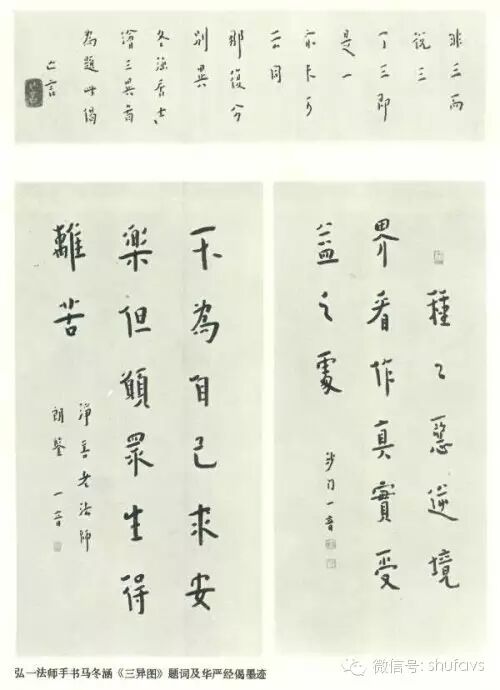 非三而
说三
了三即
是一
亦不可
云同
那復分
别異
冬涵居士
繪三異啚
為題此偈
亡言
種々惡逆境
界看作真實受
益之處
沙门一音
不為自己求安
樂但願眾生得
離苦
淨善老法師
朗鉴 一音
弘一法师手书马冬涵《三异图》题词及华严经偈墨迹
微信号: shufavs